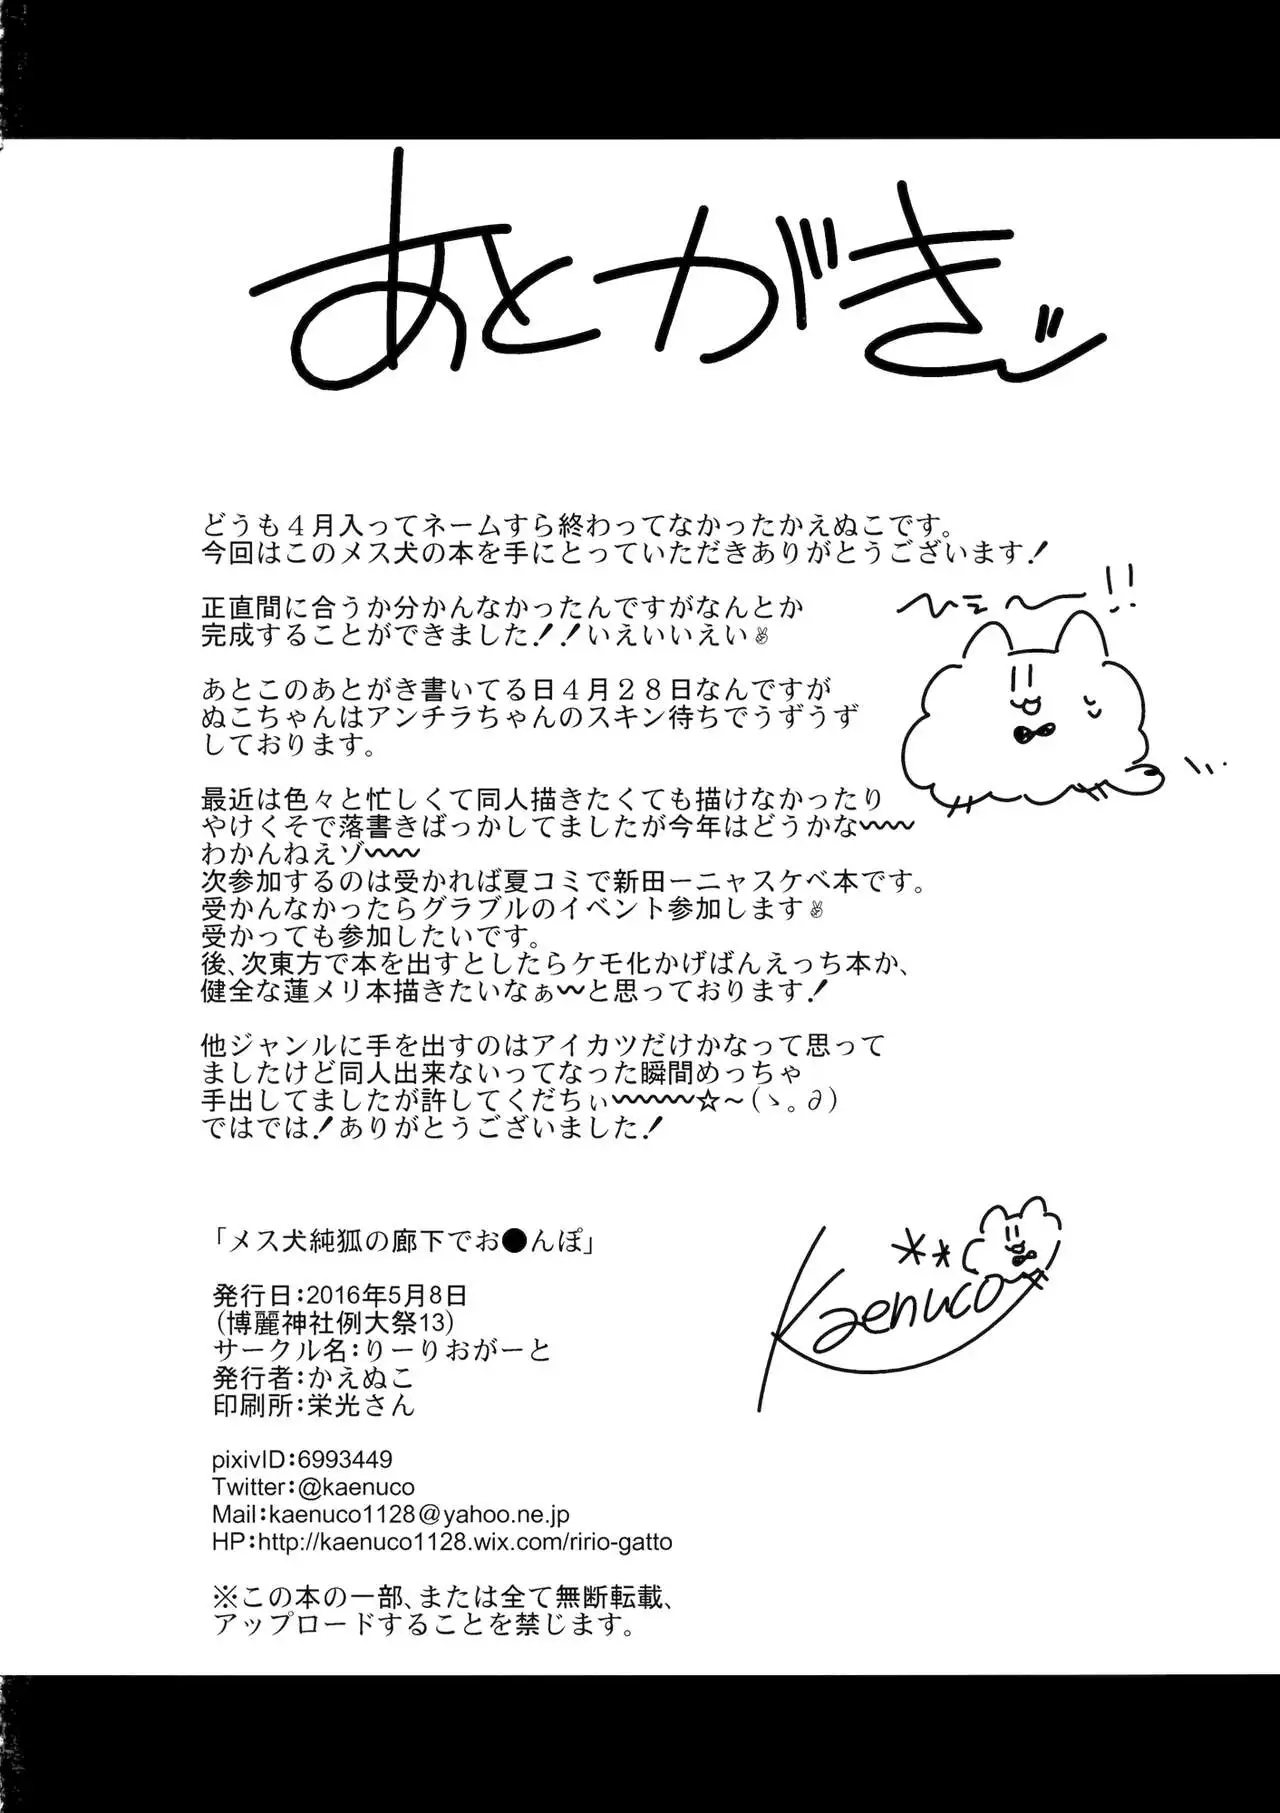 あとがきッ
どうも４月入ってネームすら終わってなかったかえぬこです。
今回はこのメス犬の本を手にとっていただきありがとうございます！
ひぇ〜!!
正直間に合うか分かんなかったんですがなんとか
完成することができました！！いえいいえい✌
あとこのあとがき書いてる日４月２８日なんですが
ぬこちゃんはアンチラちゃんのスキン待ちでうずうず
しております。
最近は色々と忙しくて同人描きたくても描けなかったり
やけくそで落書きばっかしてましたが今年はどうかな〰〰
わかんねえゾ〰〰
次参加するのは受かれば夏コミで新田ーニャスケベ本です。
受かんなかったらグラブルのイベント参加します✌
受かっても参加したいです。
後、次東方で本を出すとしたらケモ化かげばんえっち本か、
健全な蓮メリ本描きたいなぁ〰と思っております！
他ジャンルに手を出すのはアイカツだけかなって思って
ましたけど同人出来ないってなった瞬間めっちゃ
手出してましたが許してくだちぃ〰〰〰☆～（ゝ。∂）
ではでは！ありがとうございました！
「メス犬純狐の廊下でお●んぽ」
発行日：2016年5月8日
（博麗神社例大祭13）
サークル名：りーりおがーと
発行者：かえぬこ
印刷所：栄光さん
Kaenuco
pixivID：6993449
Twitter：@kaenuco
Mail：kaenuco1128@yahoo.ne.jp
HP：http://kaenuco1128.wix.com/ririo-gatto
※この本の一部、または全て無断転載、
アップロードすることを禁じます。